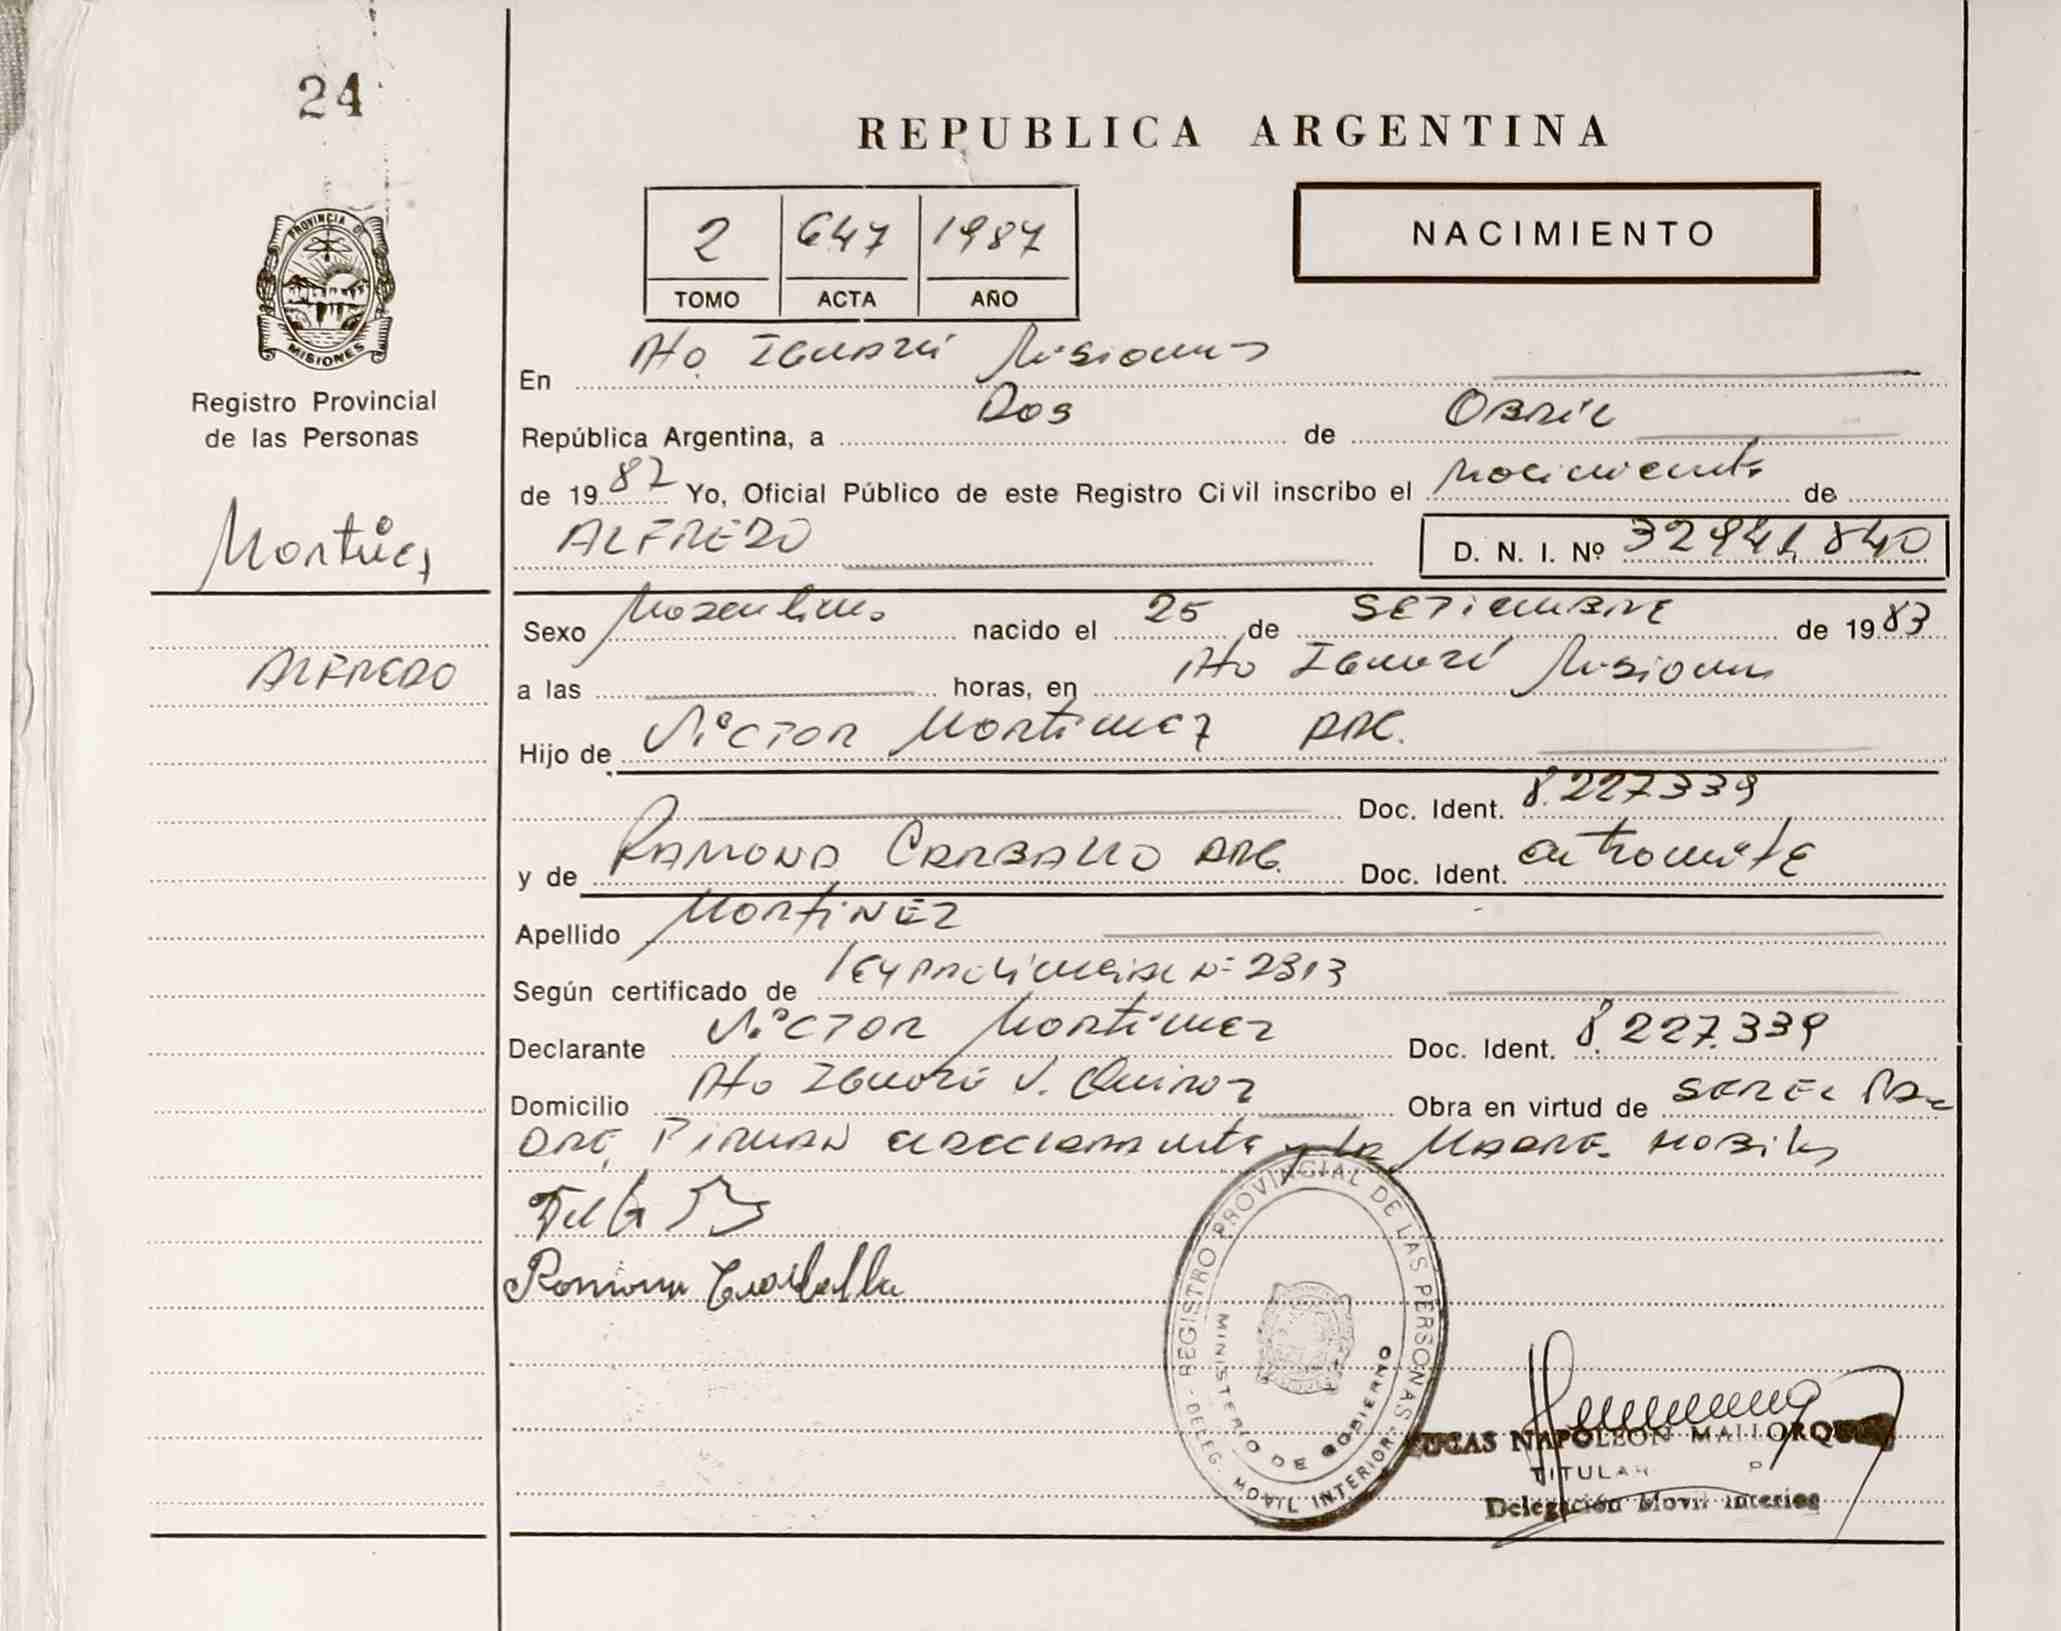 24
REPUBLICA ARGENTINA
2 647 1987
TOMO ACTA AÑO
NACIMIENTO
PROVINCIA DE
MISIONES
Registro Provincial
de las Personas
Martínez
ALFREDO
En Pto Iguazú Misiones
República Argentina, a Dos de Abril
de 1987 Yo, Oficial Público de este Registro Civil inscribo el Nacimiento de
ALFREDO D. N. I. Nº 32941840
Sexo Masculino nacido el 25 de SETIEMBRE de 1983
a las horas, en Pto Iguazú Misiones
Hijo de Victor Martinez ARG.
Doc. Ident. 8.227339
y de RAMONA CARBALLO ARG. Doc. Ident. en tramite
Apellido MARTINEZ
Según certificado de Ley Provincial Nº 2313
Declarante Victor Martinez Doc. Ident. 8.227.339
Domicilio Pto Iguazú V. Quiroz Obra en virtud de SER EL PA
DRE, FIRMAN el declarante y la MADRE.
Ramona Carballo
REGISTRO PROVINCIAL DE LAS PERSONAS
MINISTERIO DE GOBIERNO
DELEG. MOVIL INTERIOR
LUCAS NAPOLEON MALLORQUIN
TITULAR
Delegación Movil Interior